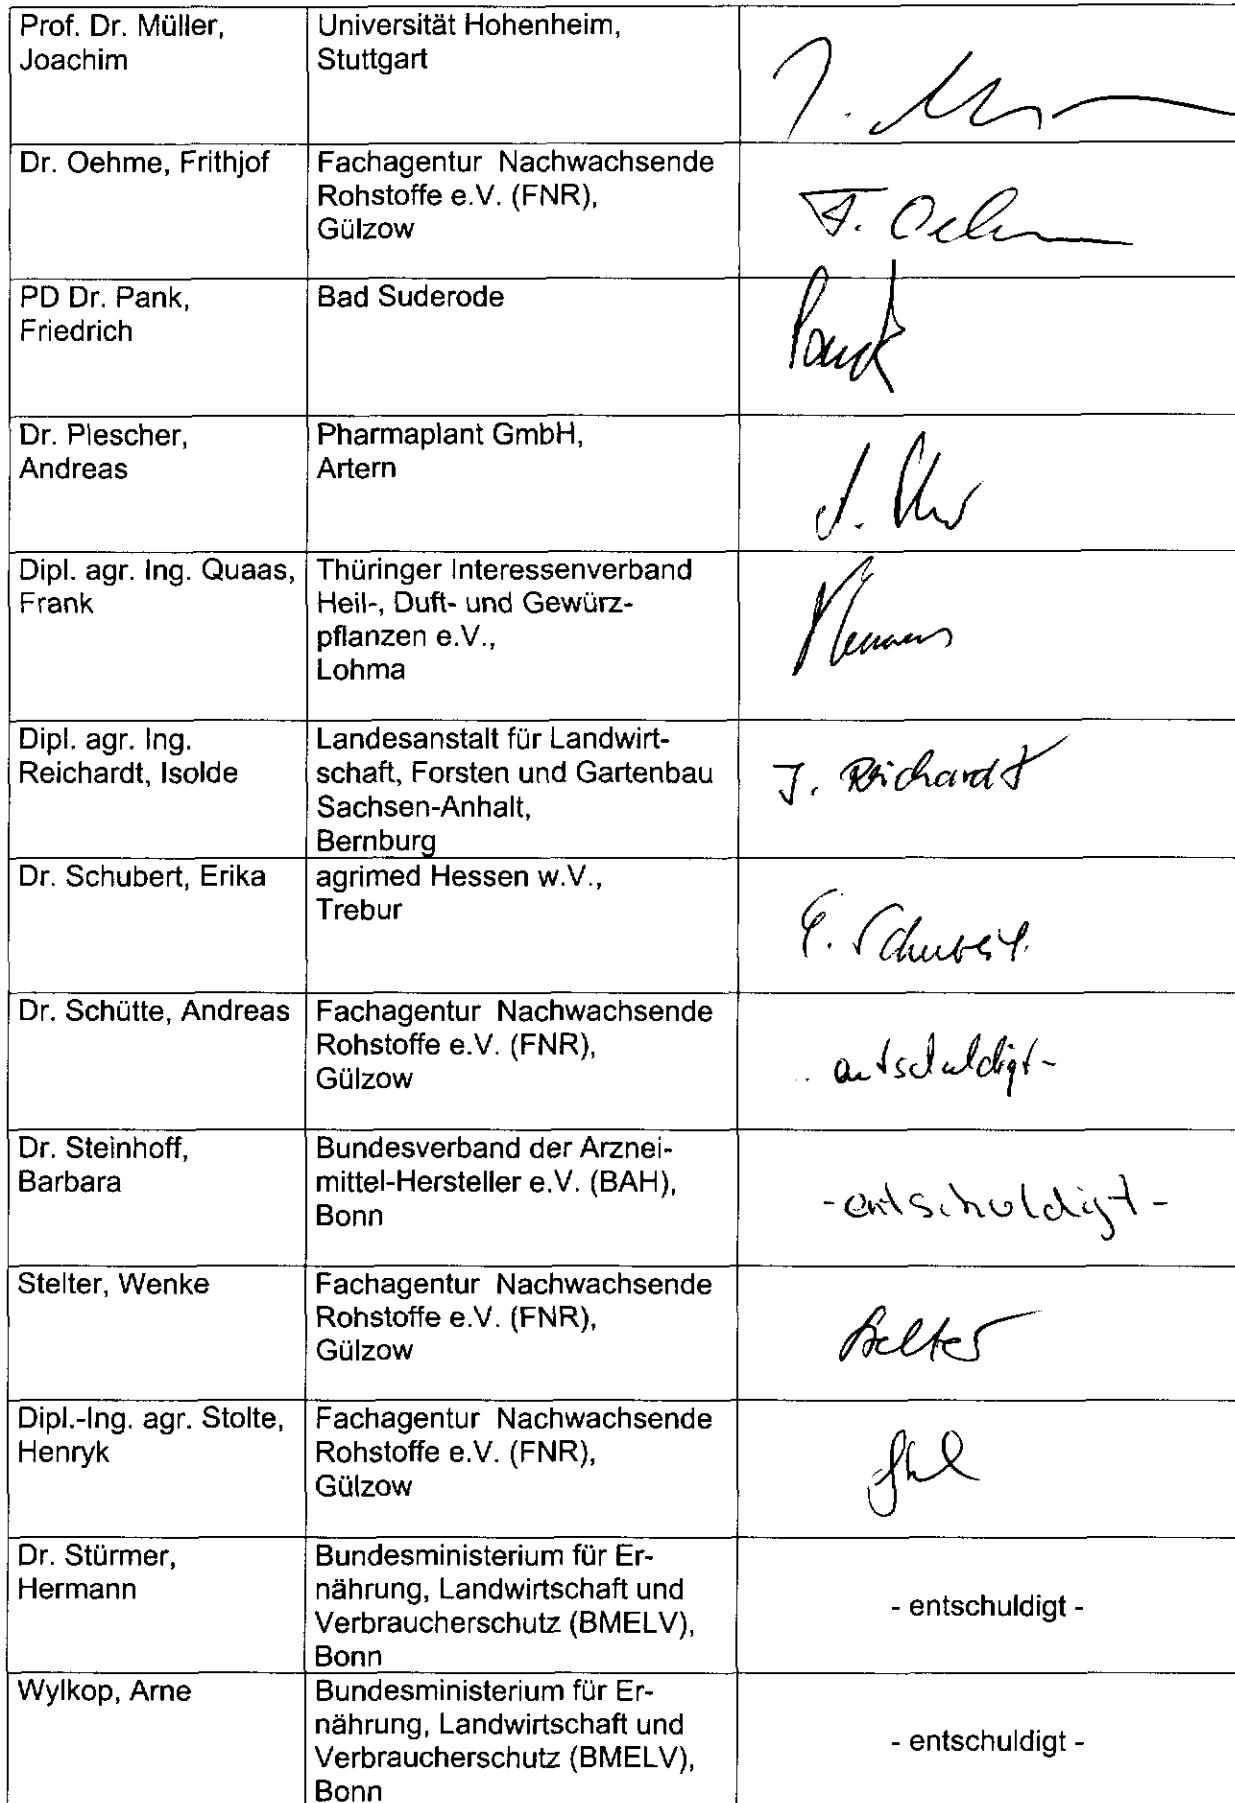 Prof. Dr. Müller,
Joachim
Universität Hohenheim,
Stuttgart
J.
Dr. Oehme, Frithjof
Fachagentur Nachwachsende
Rohstoffe e.V. (FNR),
Gülzow
F. Oehm
PD Dr. Pank,
Friedrich
Bad Suderode
Pank
Dr. Plescher,
Andreas
Pharmaplant GmbH,
Artern
Dipl. agr. Ing. Quaas,
Frank
Thüringer Interessenverband
Heil-, Duft- und Gewürz-
pflanzen e.V.,
Lohma
Dipl. agr. Ing.
Reichardt, Isolde
Landesanstalt für Landwirt-
schaft, Forsten und Gartenbau
Sachsen-Anhalt,
Bernburg
I. Reichardt
Dr. Schubert, Erika
agrimed Hessen w.V.,
Trebur
E. Schubert
Dr. Schütte, Andreas
Fachagentur Nachwachsende
Rohstoffe e.V. (FNR),
Gülzow
entschuldigt -
Dr. Steinhoff,
Barbara
Bundesverband der Arznei-
mittel-Hersteller e.V. (BAH),
Bonn
- entschuldigt -
Stelter, Wenke
Fachagentur Nachwachsende
Rohstoffe e.V. (FNR),
Gülzow
Stelter
Dipl.-Ing. agr. Stolte,
Henryk
Fachagentur Nachwachsende
Rohstoffe e.V. (FNR),
Gülzow
Dr. Stürmer,
Hermann
Bundesministerium für Er-
nährung, Landwirtschaft und
Verbraucherschutz (BMELV),
Bonn
- entschuldigt -
Wylkop, Arne
Bundesministerium für Er-
nährung, Landwirtschaft und
Verbraucherschutz (BMELV),
Bonn
- entschuldigt -